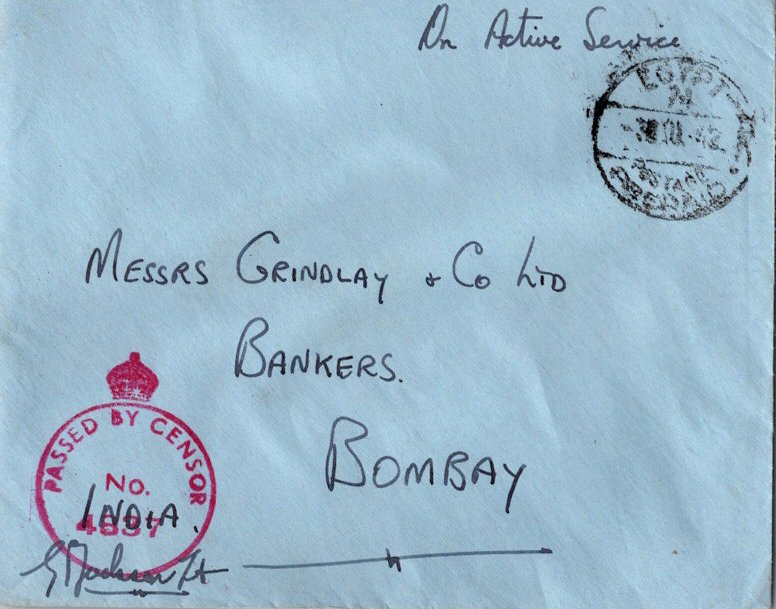 On Active Service
EGYPT
POSTAGE
PREPAID
MESSRS GRINDLAY & CO LTD
BANKERS.
BOMBAY
PASSED BY CENSOR
No.
INDIA.